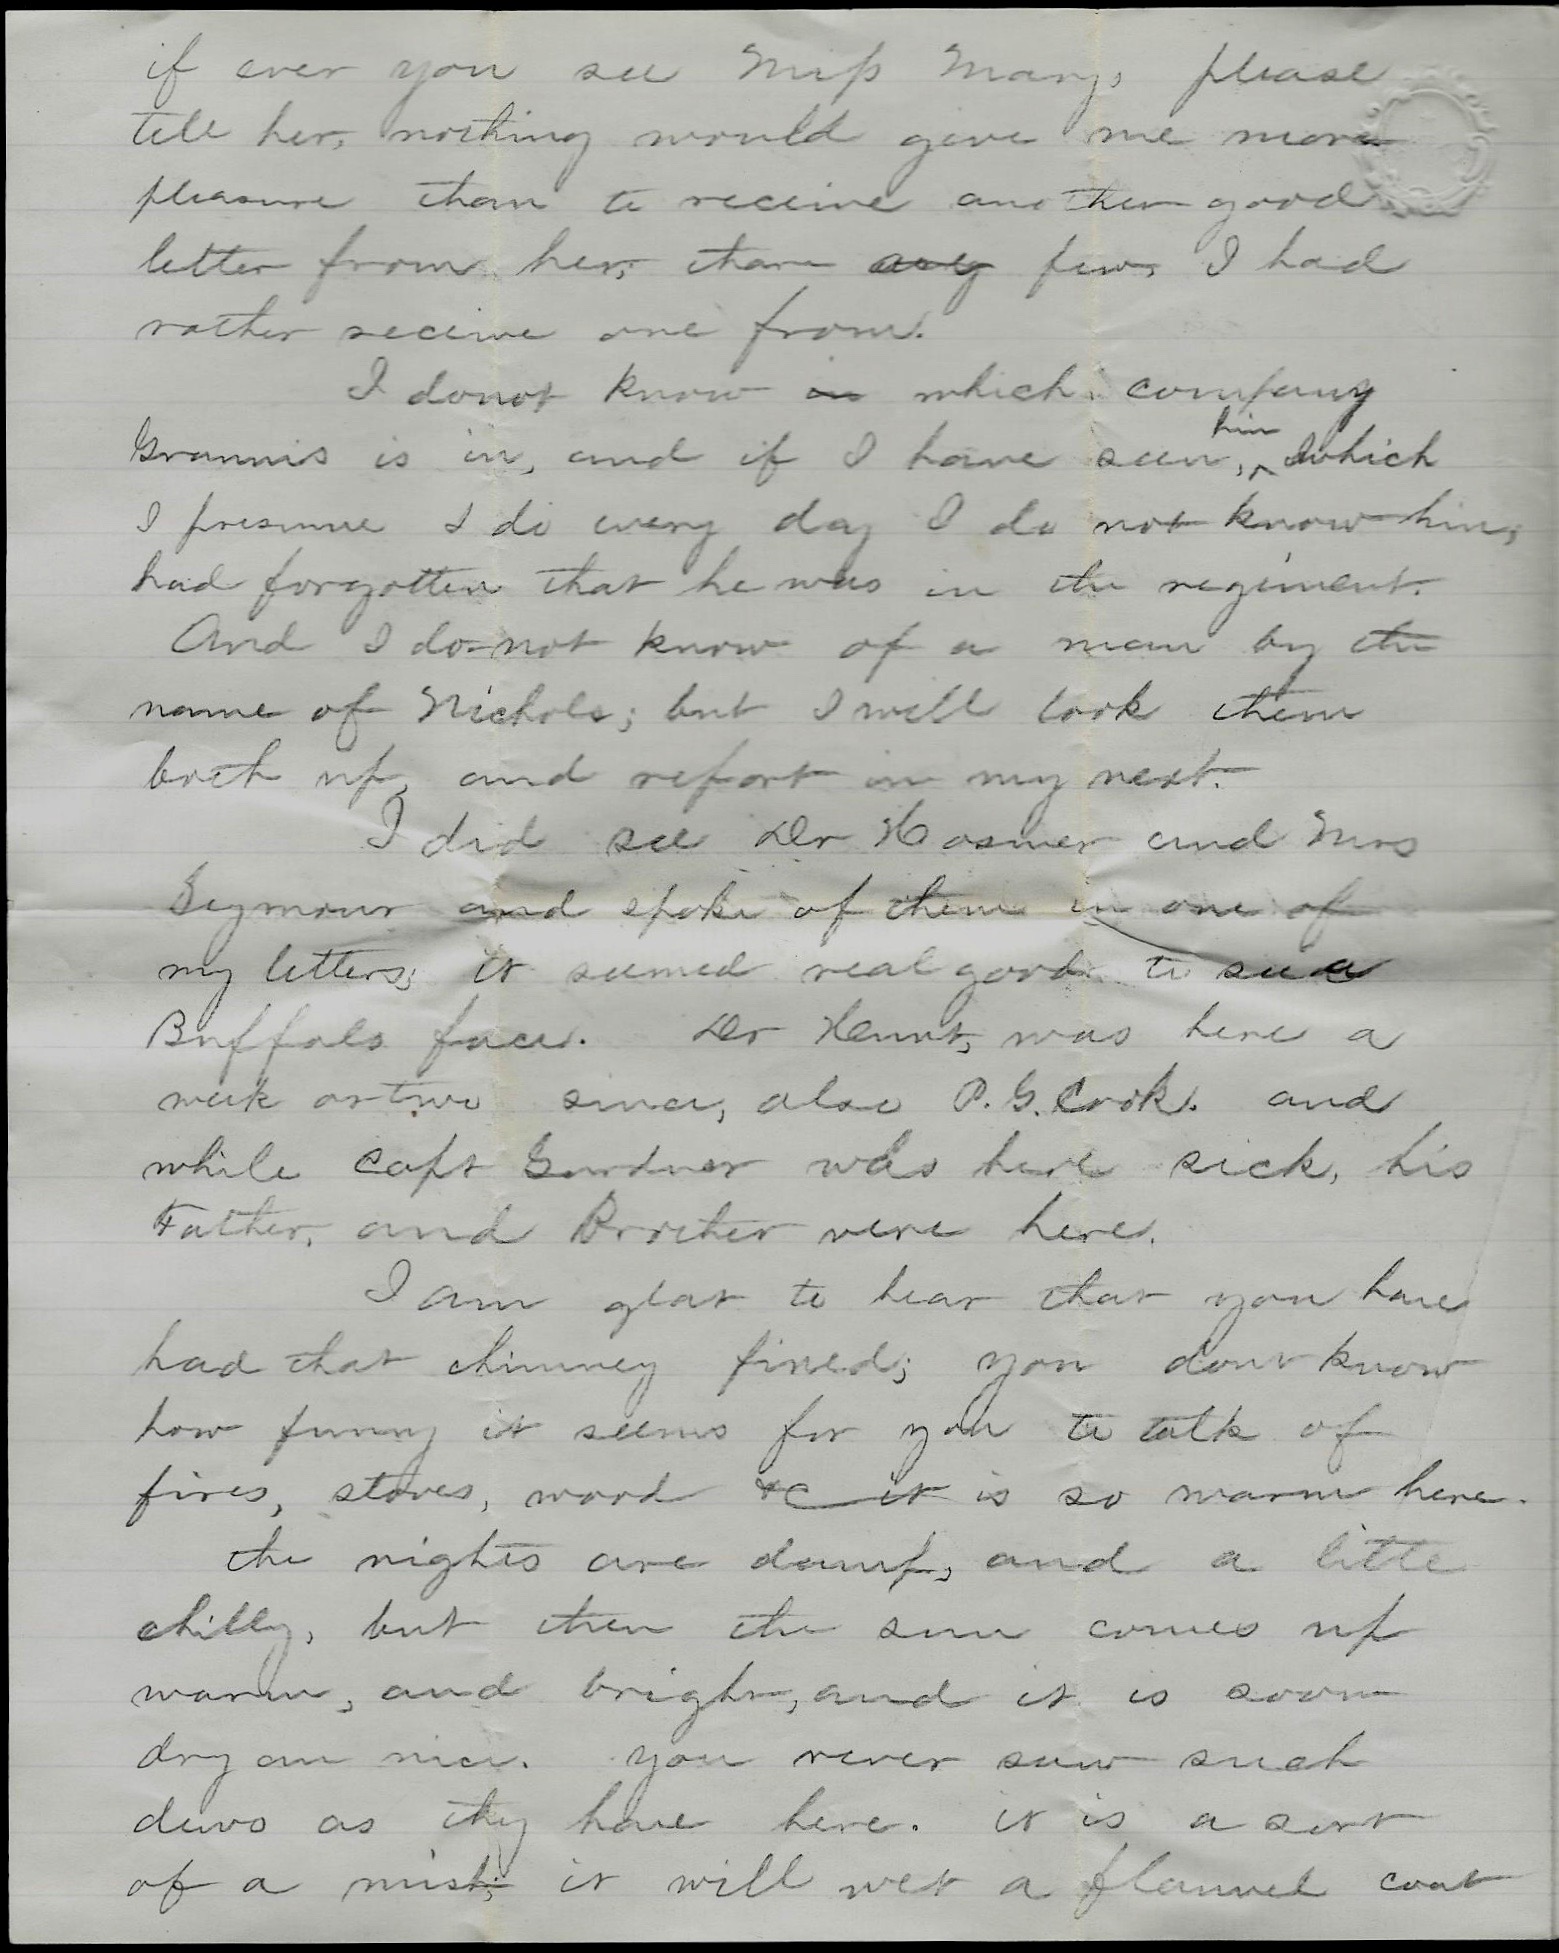 if ever you see Miss Mary, please
tell her, nothing would give me more
pleasure than to receive another good
letter from her, than few, I had
rather receive one from.
I donot know in which company
Grannis is in, and if I have seen, him which
I presume I do every day I do not know him,
had forgotten that he was in the regiment.
And I do not know of a man by the
name of Nichols; but I will look them
both up, and report in my next.
I did see Dr Hosmer and Mrs
Seymour and spoke of them in one of
my letters; it seemed real good to see a
Buffalo face. Dr Hunt, was here a
week or two since, also P. G. Cook. and
while Capt Gardner was here sick, his
Father, and Brother were here.
I am glat to hear that you have
had that chimney fixed; you dont know
how funny it seems for you to talk of
fires, stoves, wood &c it is so warm here.
the nights are damp, and a little
chilly, but then the sun comes up
warm, and bright, and it is soon
dry an nice. you never saw such
dews as they have here. it is a sort
of a mist; it will wet a flannel coat